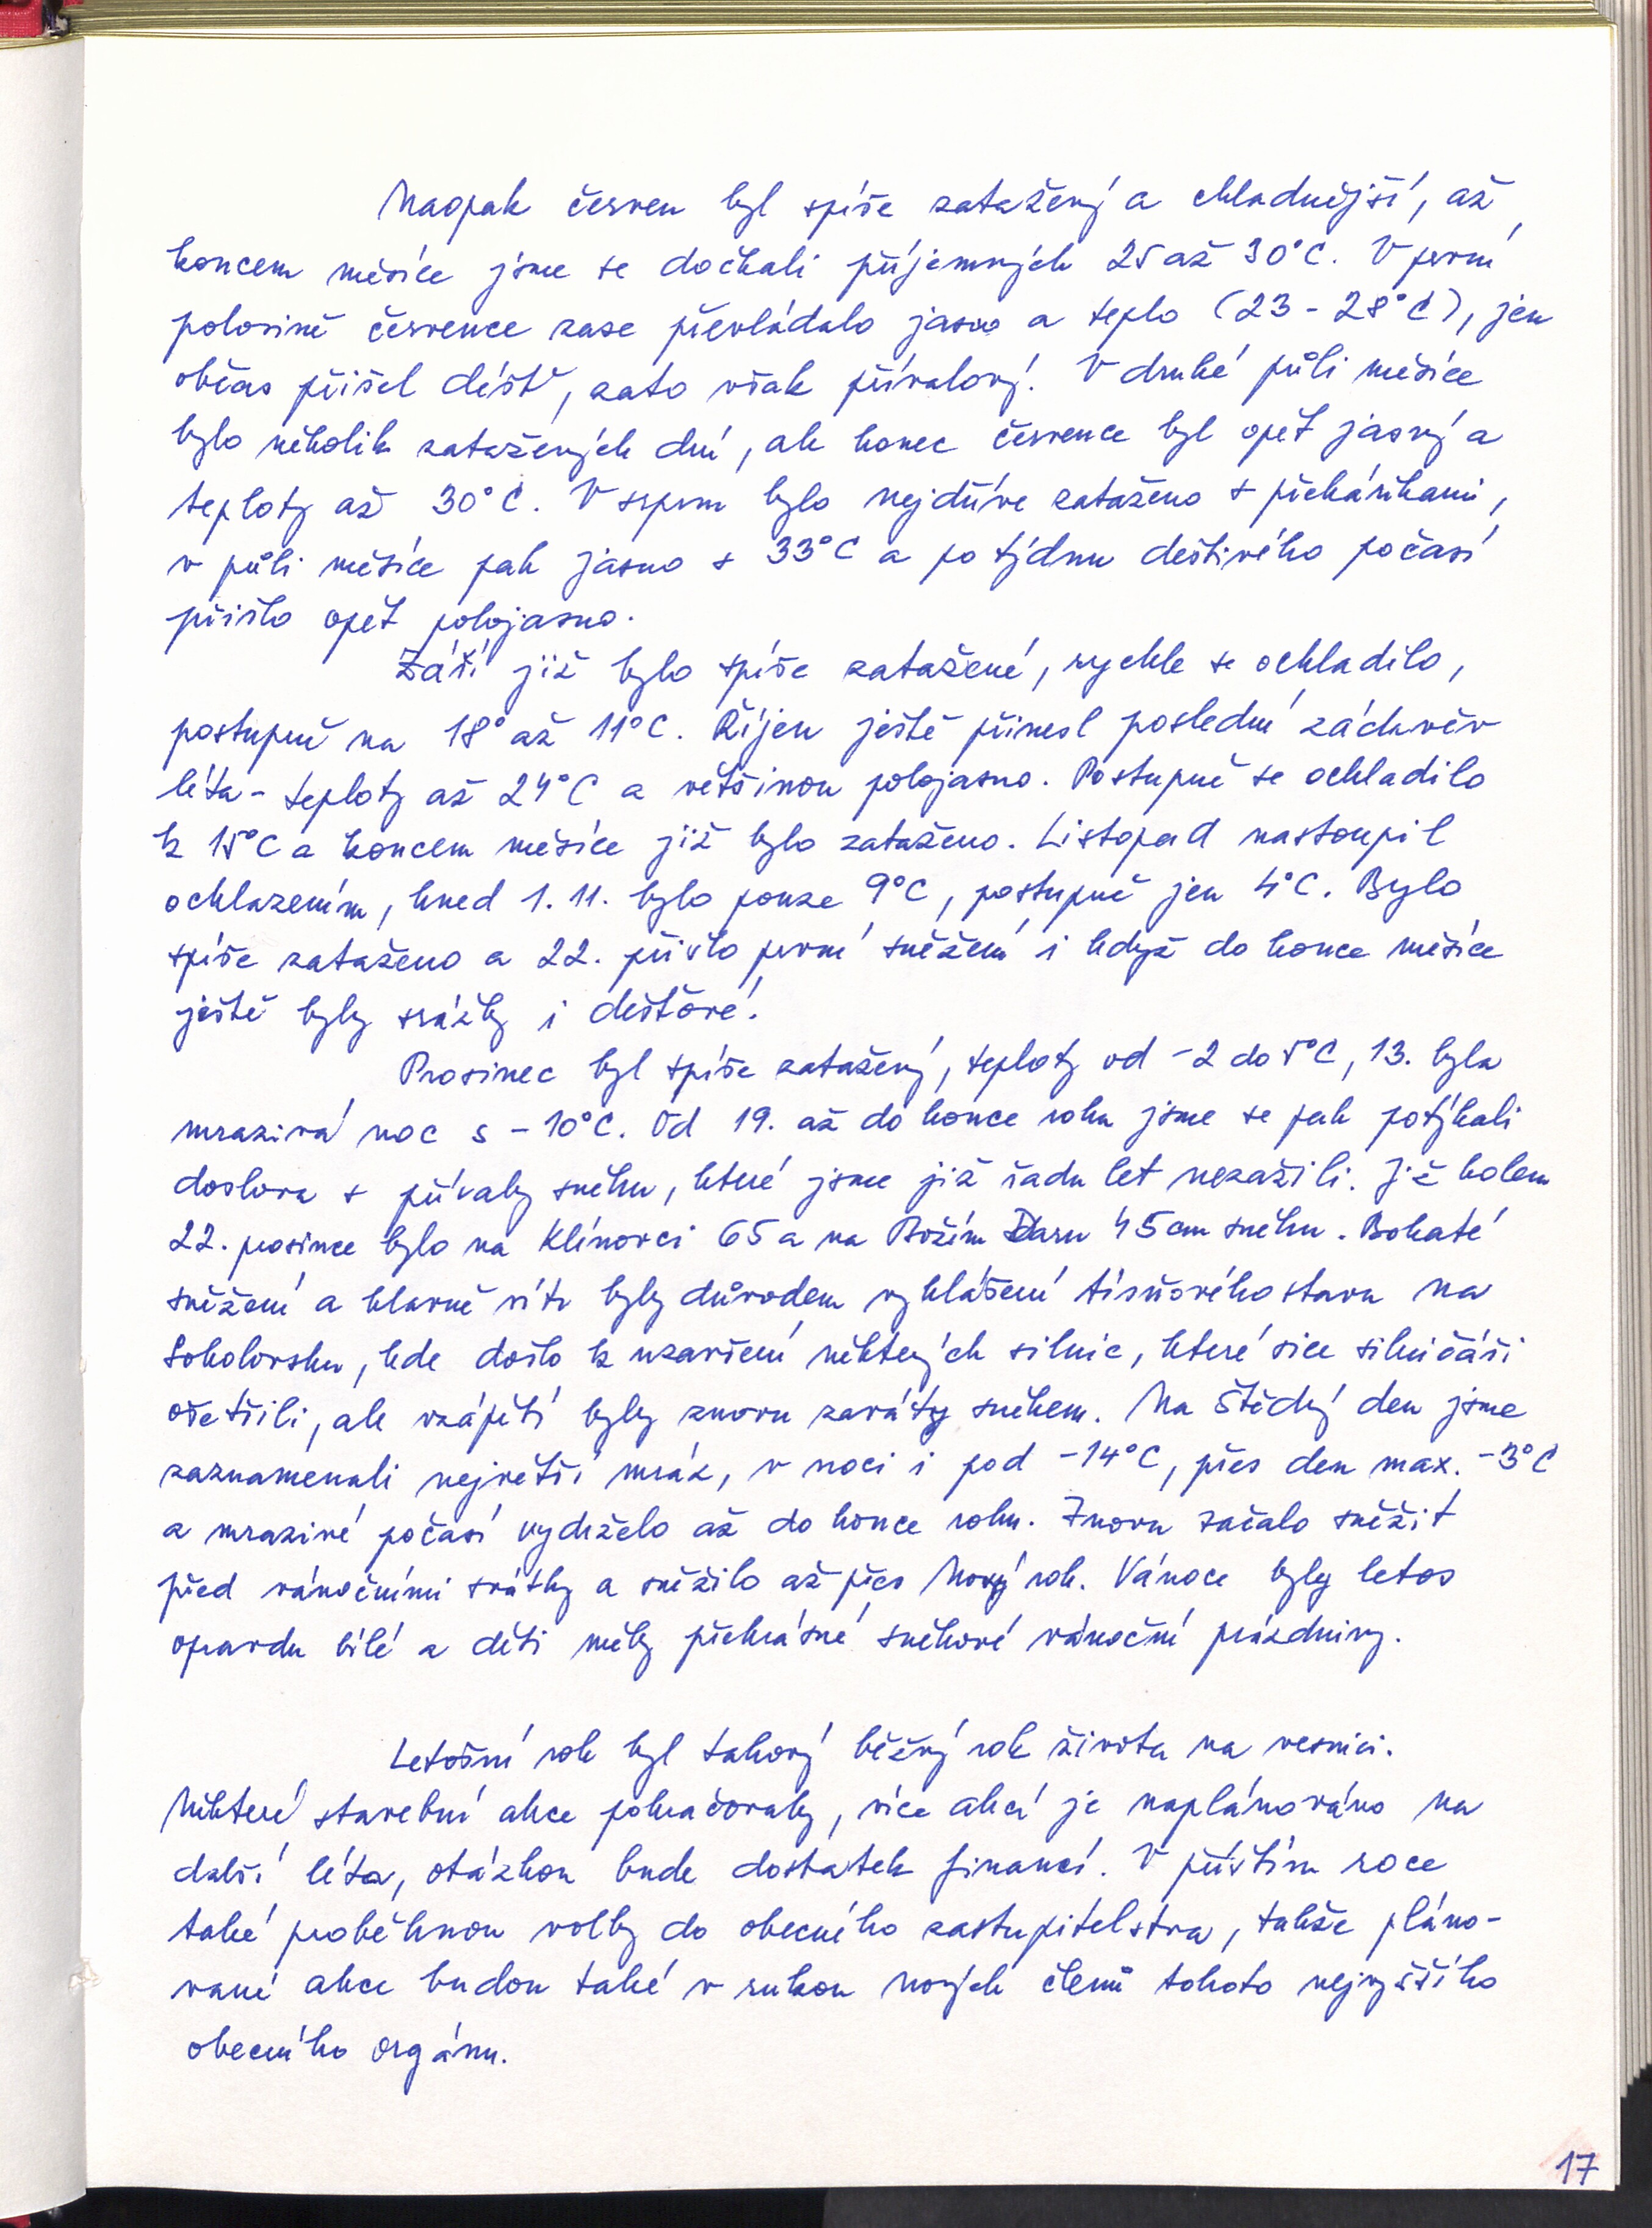 Naopak červen byl spíše zatažený a chladnější, až
koncem měsíce jsme se dočkali příjemných 25 až 30°C. V první
polovině července zase převládalo jasno a teplo (23 - 28°C), jen
občas přišel déšť, zato však přívalový. V druhé půli měsíce
bylo několik zatažených dní, ale konec července byl opět jasný a
teploty až 30°C. V srpnu bylo nejdříve zataženo s přeháňkami,
v půli měsíce pak jasno s 33°C a po týdnu deštivého počasí
přišlo opět polojasno.
Září již bylo spíše zatažené, rychle se ochladilo,
postupně na 18° až 11°C. Říjen ještě přinesl poslední záchvěv
léta - teploty až 24°C a většinou polojasno. Postupně se ochladilo
k 15°C a koncem měsíce již bylo zataženo. Listopad nastoupil
ochlazením, hned 1. 11. bylo pouze 9°C, postupně jen 4°C. Bylo
spíše zataženo a 22. přišlo první sněžení i když do konce měsíce
ještě byly srážky i dešťové.
Prosinec byl spíše zatažený, teploty od -2 do 5°C, 13. byla
mrazivá noc s -10°C. Od 19. až do konce roku jsme se pak potýkali
doslova s přívaly sněhu, které jsme již řadu let nezažili. Již kolem
22. prosince bylo na Klínovci 65 a na Božím Daru 45 cm sněhu. Bohaté
sněžení a hlavně vítr byly důvodem vyhlášení tísňového stavu na
Sokolovsku, kde došlo k uzavření některých silnic, které sice silničáři
ošetřili, ale vzápětí byly znovu zaváty sněhem. Na Štědrý den jsme
zaznamenali největší mráz, v noci i pod -14°C, přes den max. -3°C
a mrazivé počasí vydrželo až do konce roku. Znovu začalo sněžit
před vánočními svátky a sněžilo až přes Nový rok. Vánoce byly letos
opravdu bílé a děti měly překrásné sněhové vánoční prázdniny.
Letošní rok byl takový běžný rok života na vesnici.
Některé stavební akce pokračovaly, více akcí je naplánováno na
další léta, otázkou bude dostatek financí. V příštím roce
také proběhnou volby do obecného zastupitelstva, takže pláno-
vané akce budou také v rukou nových členů tohoto nejvyššího
obecního orgánu.
17